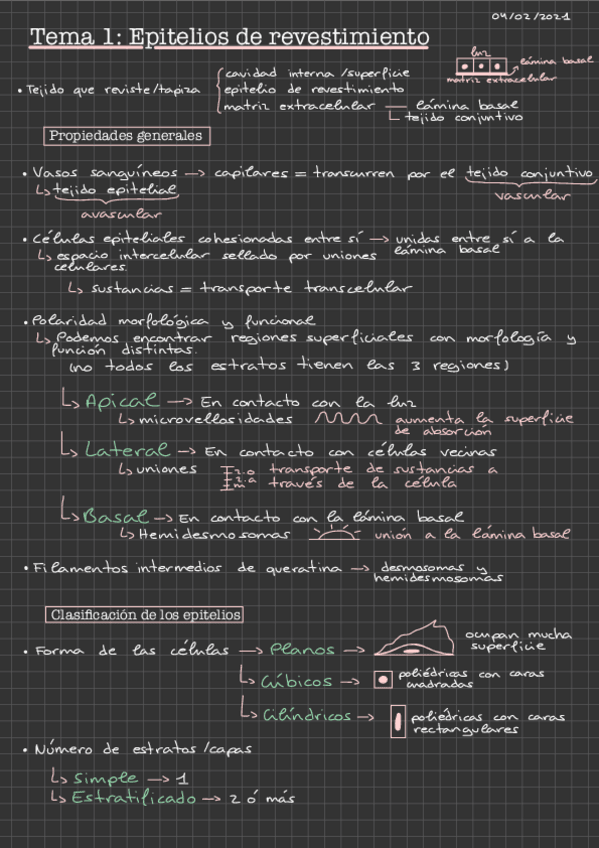 04/02/2021
Tema 1: Epitelios de revestimiento
luz
lámina basal
matriz extracelular
• Tejido que reviste/tapiza
cavidad interna/superficie
epitelio de revestimiento
matriz extracelular — lámina basal
tejido conjuntivo
Propiedades generales
• Vasos sanguíneos → capilares = transcurren por el tejido conjuntivo
↳ tejido epitelial
vascular
avascular
• Células epiteliales cohesionadas entre sí → unidas entre sí a la
lámina basal
↳ espacio intercelular sellado por uniones
celulares.
↳ sustancias = transporte transcelular
• Polaridad morfológica y funcional
↳ Podemos encontrar regiones superficiales con morfología y
función distintas.
(no todos los estratos tienen las 3 regiones)
↳ Apical → En contacto con la luz
↳ microvellosidades aumenta la superficie
de absorción
↳ Lateral → En contacto con células vecinas
↳ uniones transporte de sustancias a
través de la célula
↳ Basal → En contacto con la lámina basal
↳ Hemidesmosomas unión a la lámina basal
• Filamentos intermedios de queratina → desmosomas y
hemidesmosomas
Clasificación de los epitelios
• Forma de las células → Planos → ocupan mucha
superficie
↳ Cúbicos → poliédricas con caras
cuadradas
↳ Cilíndricos → poliédricas con caras
rectangulares
• Número de estratos/capas
↳ Simple → 1
↳ Estratificado → 2 ó más